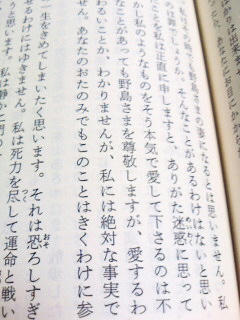 野島さまの妻になるとは思いません。私
の罪でしょうか。そんなことがあるわけはないと思い
も私は正直に申しますと、ありがた迷惑に思って
か私のようなものをそう本気で愛して下さるのは不
なことがあっても野島さまを尊敬しますが、愛するわ
なことか、わかりませんが、私には絶対な事実で
せん。あなたのおたのみでもこのことはきくわけに参
一生をきめてしまいたく思います。それは恐ろしすぎ
せるわけにはゆきません。私は死力を尽して運命と戦い
う思います。私は静かに門の